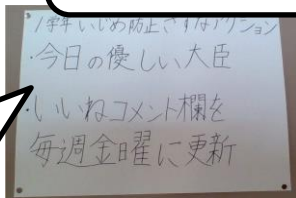 1学年いじめ防止きずなアクション
・今日の優しい大臣
・いいねコメント欄を
毎週金曜に更新